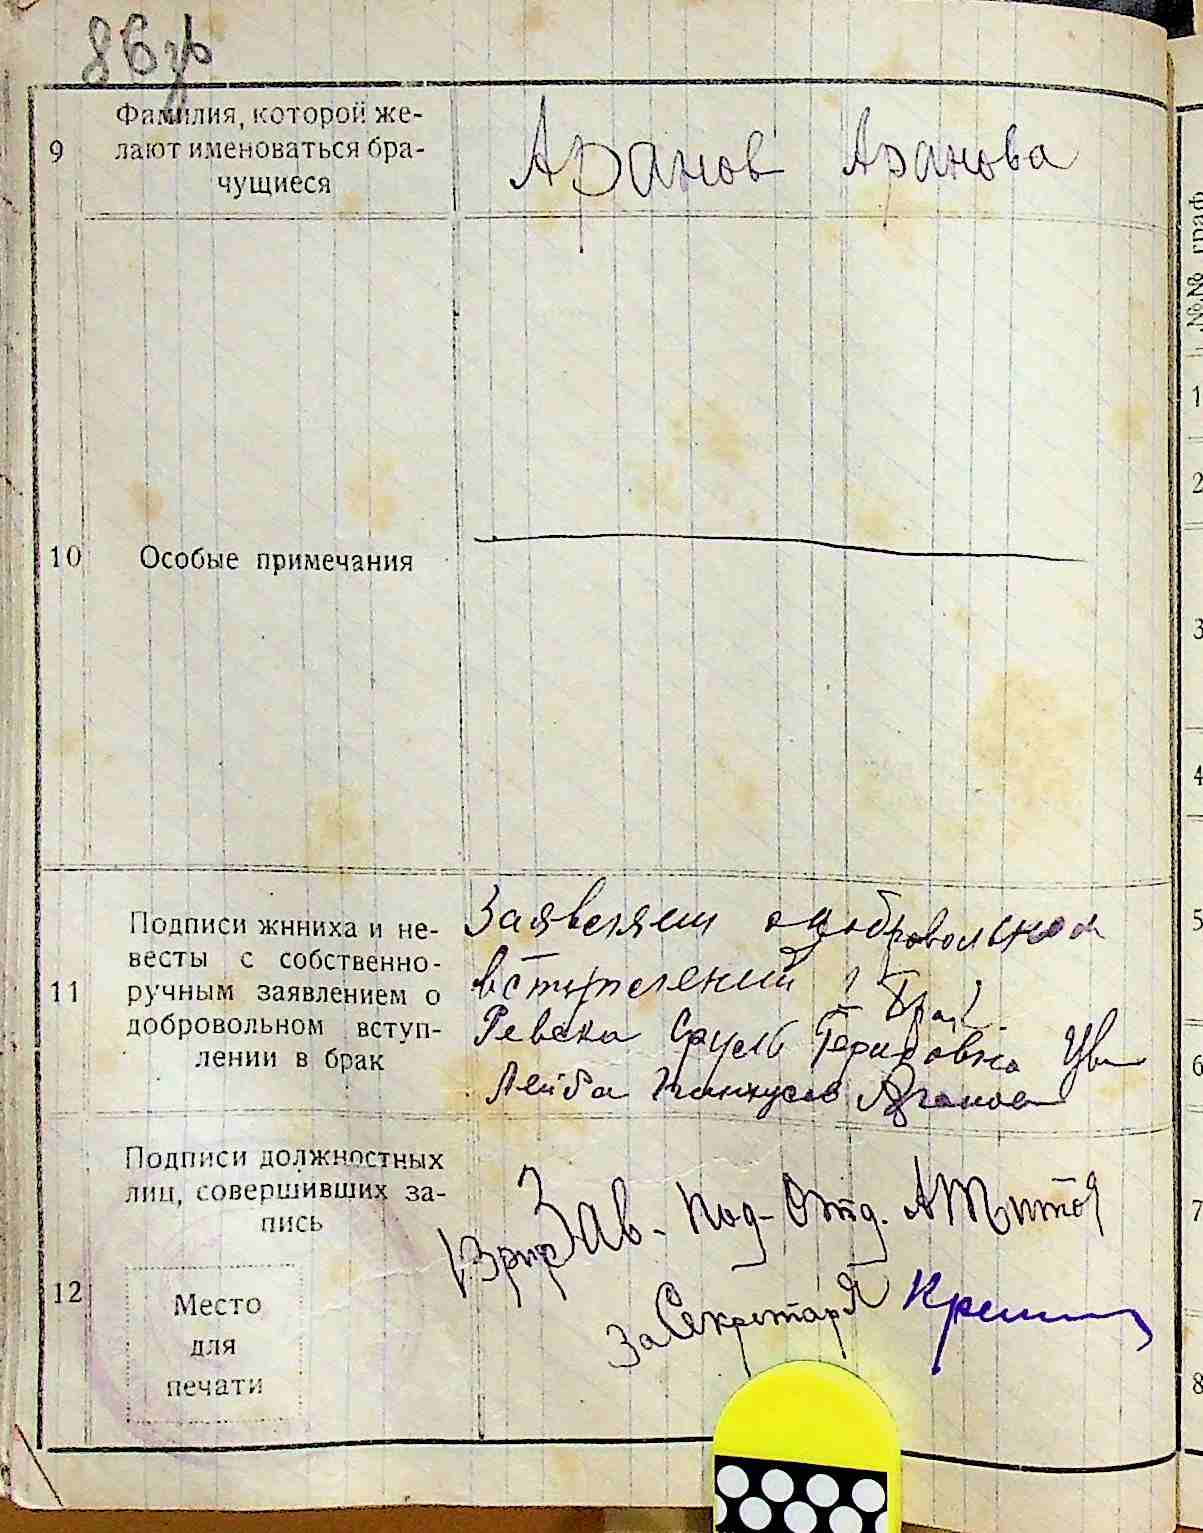 86 зв
9
Фамилия, которой же-
лают именоваться бра-
чущиеся
Аранов Аранова
10
Особые примечания
11
Подписи жнниха и не-
весты с собственно-
ручным заявлением о
добровольном вступ-
лении в брак
Заявляем о добровольном
вступлений в брак
Ревека Сруль
Лейба Пинхусов Аранов
12
Подписи должностных
лиц, совершивших за-
пись
Место
для
печати
Врид Зав. Под-Отд.
За Секретаря
№№ граф
1
2
3
4
5
6
7
8